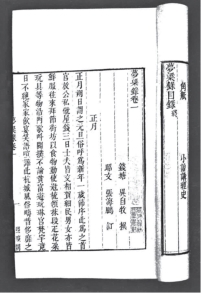 角觝
小說講經史
夢粱錄目錄終
夢粱錄卷一
錢塘 吳自牧 撰
昭文 張海鵬 訂
正月
正月朔日謂之元旦俗呼為新年一歲節序此為之首
官放公私僦屋錢三日士夫皆交相賀細民男女亦皆
鮮衣往來拜節街坊以食物動使冠梳領抹段疋花朵
玩具等物沿門歌叫關撲不論貧富遊玩琳宮梵宇竟
日不絕家家飲宴笑語喧譁此杭城風俗疇昔侈靡之
夢粱錄卷一